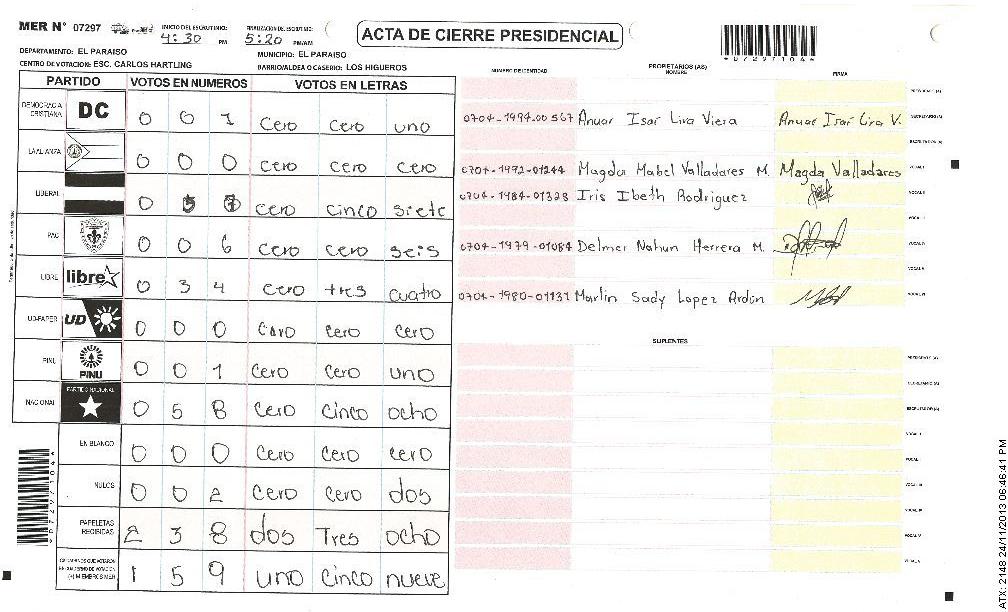 MER N° 07297 INICIO DEL ESCRUTINIO: 4:30 PM FINALIZACION DEL ESCRUTINIO: 5:20 PM/AM
ACTA DE CIERRE PRESIDENCIAL
*07297104*
DEPARTAMENTO: EL PARAISO MUNICIPIO: EL PARAISO
CENTRO DE VOTACION: ESC. CARLOS HARTLING BARRIO/ALDEA O CASERIO: LOS HIGUEROS
PARTIDO VOTOS EN NUMEROS VOTOS EN LETRAS
DEMOCRACIA CRISTIANA DC 0 0 1 cero cero uno
LA ALIANZA 0 0 0 cero cero cero
LIBERAL 0 5 7 cero cinco siete
PAC 0 0 6 cero cero seis
LIBRE libre 0 3 4 cero tres cuatro
UD-FAPER UD 0 0 0 cero cero cero
PINU PINU 0 0 1 cero cero uno
NACIONAL PARTIDO NACIONAL 0 5 8 cero cinco ocho
EN BLANCO 0 0 0 cero cero cero
NULOS 0 0 2 cero cero dos
PAPELETAS RECIBIDAS 2 3 8 dos Tres ocho
CIUDADANOS QUE VOTARON EN CUADERNO DE VOTACION (+) MIEMBROS MER 1 5 9 uno cinco nueve
*07297104*
NUMERO DE IDENTIDAD PROPIETARIOS (AS) NOMBRE FIRMA
PRESIDENTE (A)
0704-1994-00567 Anuar Isai Lira Viera Anuar Isai Lira V. SECRETARIO (A)
ESCRUTADOR (A)
0704-1992-01244 Magda Mabel Valladares M. Magda Valladares VOCAL I
0704-1984-01328 Iris Ibeth Rodriguez VOCAL II
VOCAL III
0704-1979-01084 Delmer Nahun Herrera M. VOCAL IV
VOCAL V
0704-1980-01131 Marlin Sady Lopez Ardon VOCAL VI
SUPLENTES
PRESIDENTE (A)
SECRETARIO (A)
ESCRUTADOR (A)
VOCAL I
VOCAL II
VOCAL III
VOCAL IV
VOCAL V
VOCAL VI
ATX: 2148 24/11/2013 06:46:41 PM